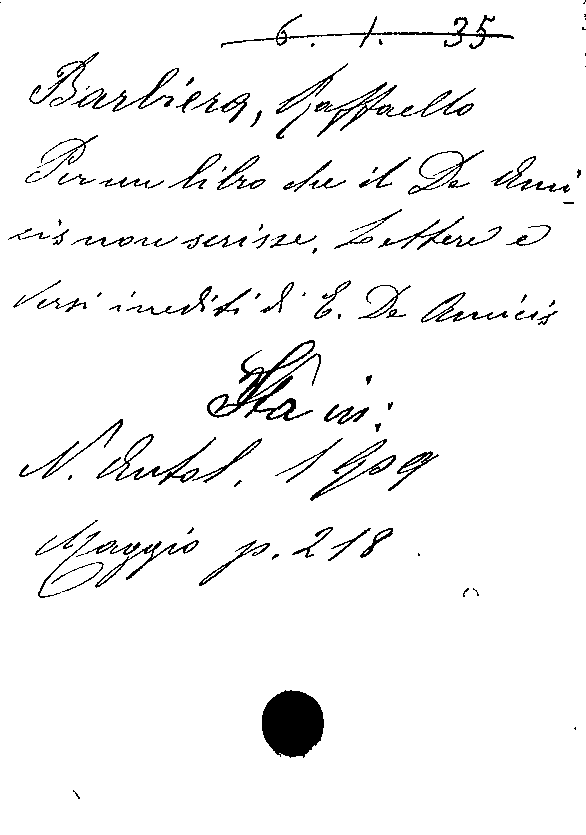 6. 1. 35
Barbiera, Raffaello
Per un libro che il De Ami-
cis non scrisse. Lettere e
versi inediti di E. De Amicis
Sta in:
N. Antol. 1909
Maggio p. 218